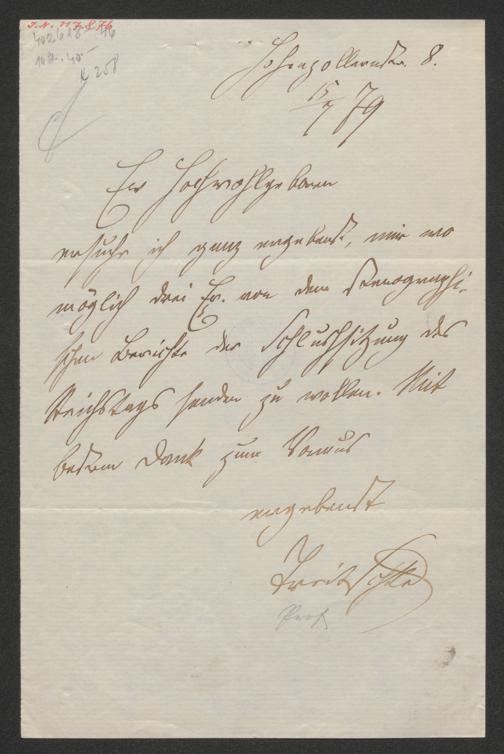 I.N. 117.876
Hohenzollernstr. 8.
15/7 79
Ew Hochwohlgeboren
ersuche ich ganz ergebenst, mir wo
möglich drei Ex. von dem stenographi-
schen Berichte der Schlußsitzung des
Reichstags senden zu wollen. Mit
bestem Dank zum Voraus
ergebenst
Treitschke
Prof